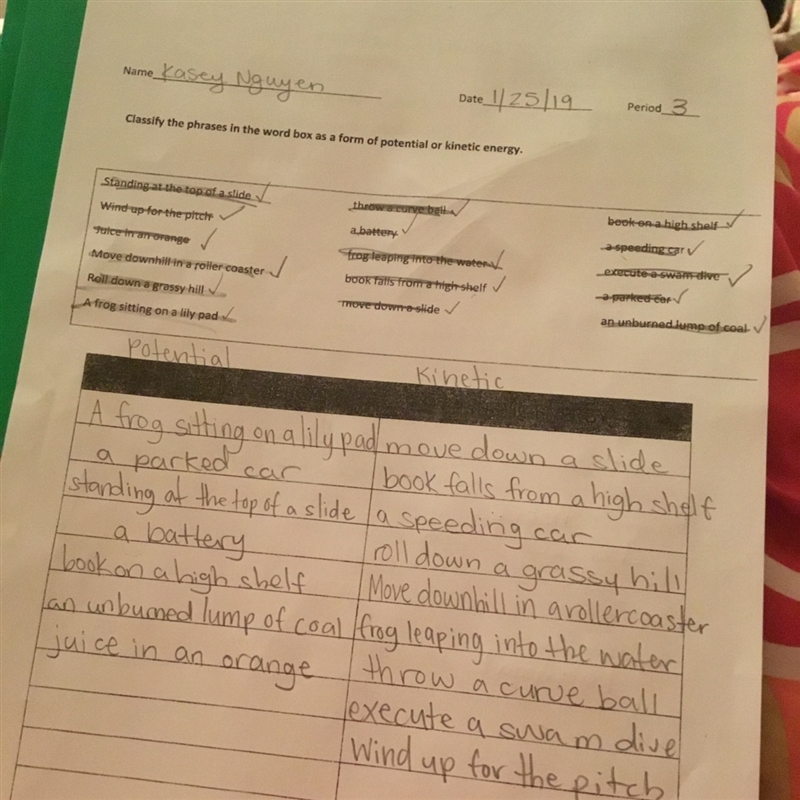 Name Kasey Nguyen
Date 1/25/19 Period 3
Classify the phrases in the word box as a form of potential or kinetic energy.
Standing at the top of a slide
Wind up for the pitch
Juice in an orange
Move downhill in a roller coaster
Roll down a grassy hill
A frog sitting on a lily pad
throw a curve ball
a battery
frog leaping into the water
book falls from a high shelf
move down a slide
book on a high shelf
a speeding car
execute a swam dive
a parked car
an unburned lump of coal
Potential Kinetic
A frog sitting on a lily pad move down a slide
a parked car book falls from a high shelf
standing at the top of a slide a speeding car
a battery roll down a grassy hill
book on a high shelf Move downhill in a rollercoaster
an unburned lump of coal frog leaping into the water
juice in an orange throw a curve ball
execute a swam dive
Wind up for the pitch